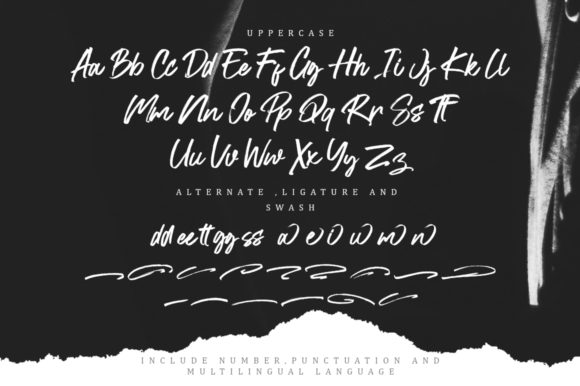 UPPERCASE
Aa Bb Cc Dd Ee Ff Gg Hh Ii Jj Kk Ll
Mm Nn Oo Pp Qq Rr Ss Tt
Uu Vv Ww Xx Yy Zz
ALTERNATE ,LIGATURE AND
SWASH
dd ee tt gg ss a e O w m n
INCLUDE NUMBER,PUNCTUATION AND
MULTILINGUAL LANGUAGE